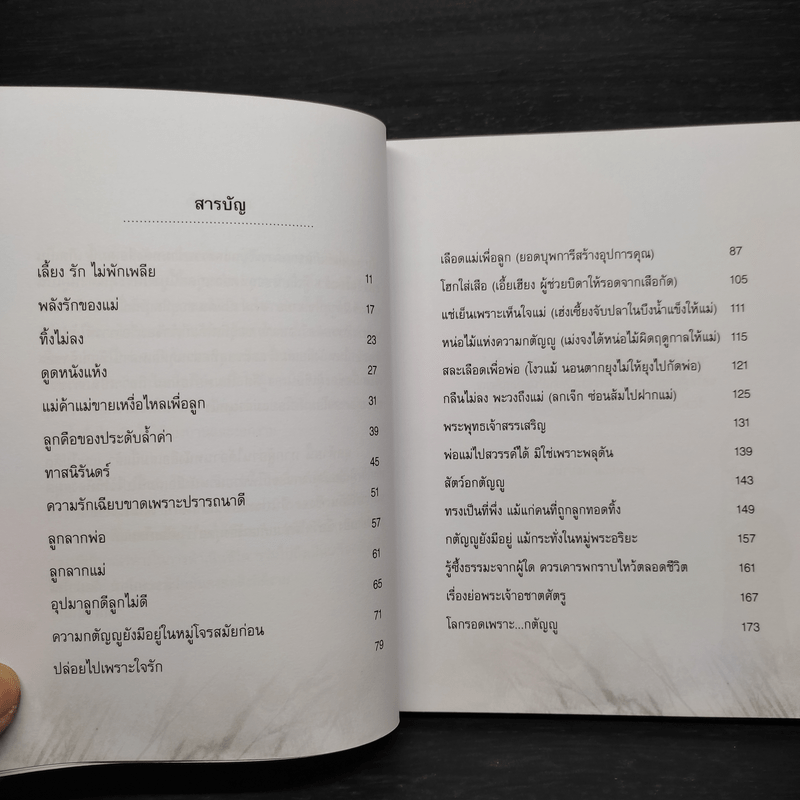 สารบัญ
เลี้ยง รัก ไม่พักเพลีย 11
พลังรักของแม่ 17
ทิ้งไม่ลง 23
ดูดหนังแห้ง 27
แม่ค้าแม่ขายเหงื่อไหลเพื่อลูก 31
ลูกคือของประดับล้ำค่า 39
ทาสนิรันดร์ 45
ความรักเฉียบขาดเพราะปรารถนาดี 51
ลูกลากพ่อ 57
ลูกลากแม่ 61
อุปมาลูกดีลูกไม่ดี 65
ความกตัญญูยังมีอยู่ในหมู่โจรสมัยก่อน 71
ปล่อยไปเพราะใจรัก 79
เลือดแม่เพื่อลูก (ยอดบุพการีสร้างอุปการคุณ) 87
โฮกใส่เสือ (เอี้ยเฮียง ผู้ช่วยบิดาให้รอดจากเสือกัด) 105
แช่เย็นเพราะเห็นใจแม่ (เฮ่งเซี้ยงจับปลาในบึงน้ำแข็งให้แม่) 111
หน่อไม้แห่งความกตัญญู (เม่งจงได้หน่อไม้ผิดฤดูกาลให้แม่) 115
สละเลือดเพื่อพ่อ (โงวแม้ นอนตากยุงไม่ให้ยุงไปกัดพ่อ) 121
กลืนไม่ลง พะวงถึงแม่ (ลกเจ็ก ซ่อนส้มไปฝากแม่) 125
พระพุทธเจ้าสรรเสริญ 131
พ่อแม่ไปสวรรค์ได้ มิใช่เพราะพลุดัน 139
สัตว์อกตัญญู 143
ทรงเป็นที่พึ่ง แม้แก่คนที่ถูกลูกทอดทิ้ง 149
กตัญญูยังมีอยู่ แม้กระทั่งในหมู่พระอริยะ 157
รู้ซึ้งธรรมะจากผู้ใด ควรเคารพกราบไหว้ตลอดชีวิต 161
เรื่องย่อพระเจ้าอชาตศัตรู 167
โลกรอดเพราะ...กตัญญู 173